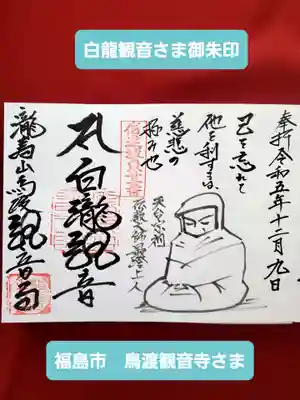 白龍観音さま御朱印
奉拝 令和五年十二月九日
己を忘れて
他を利するは
慈悲の
極み也
天台宗祖
伝教大師最澄上人
白瀧観音
瀧寿山鳥渡観音寺
福島市 鳥渡観音寺さま